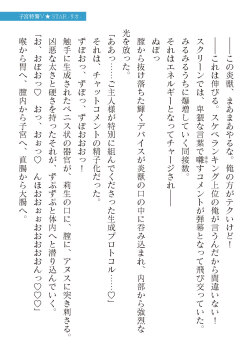 子宮特製リ★STAR、リカ
――この炎獣、まあまあやるな、俺の方がテクいけど！
――これは伸びる、スケベランキング上位の俺が言うんだから間違いない！
スクリーンでは、卑猥な言葉で囃すコメントが弾幕となって飛び交っていた。
みるみるうちに爆増していく同接数。
それはエネルギーとなってチャージされ――
ぬぽっ
膣から抜け落ちた輝くデバイスが炎獣の口の中に呑み込まれ、内部から強烈な
光を放った。
「ああっ……ご主人様が特別に組んでくださった生成プロトコル……♡」
それは、チャットコメントの精子化だった。
ずぽおっ、ずっぽおっ、ずぽずぽっ！
触手に生成されたペニス状の器官が、莉生の口に、膣に、アヌスに突き刺さる。
凶悪な太さと硬さを持ったそれが、ずぶずぶと体内へと潜り込んでいく。
「お、おぼおっ♡　おっ、おぉっ♡　んほおおぉおおおおんっ♡♡♡」
喉から胃へ、膣内から子宮へ、直腸から大腸へ。